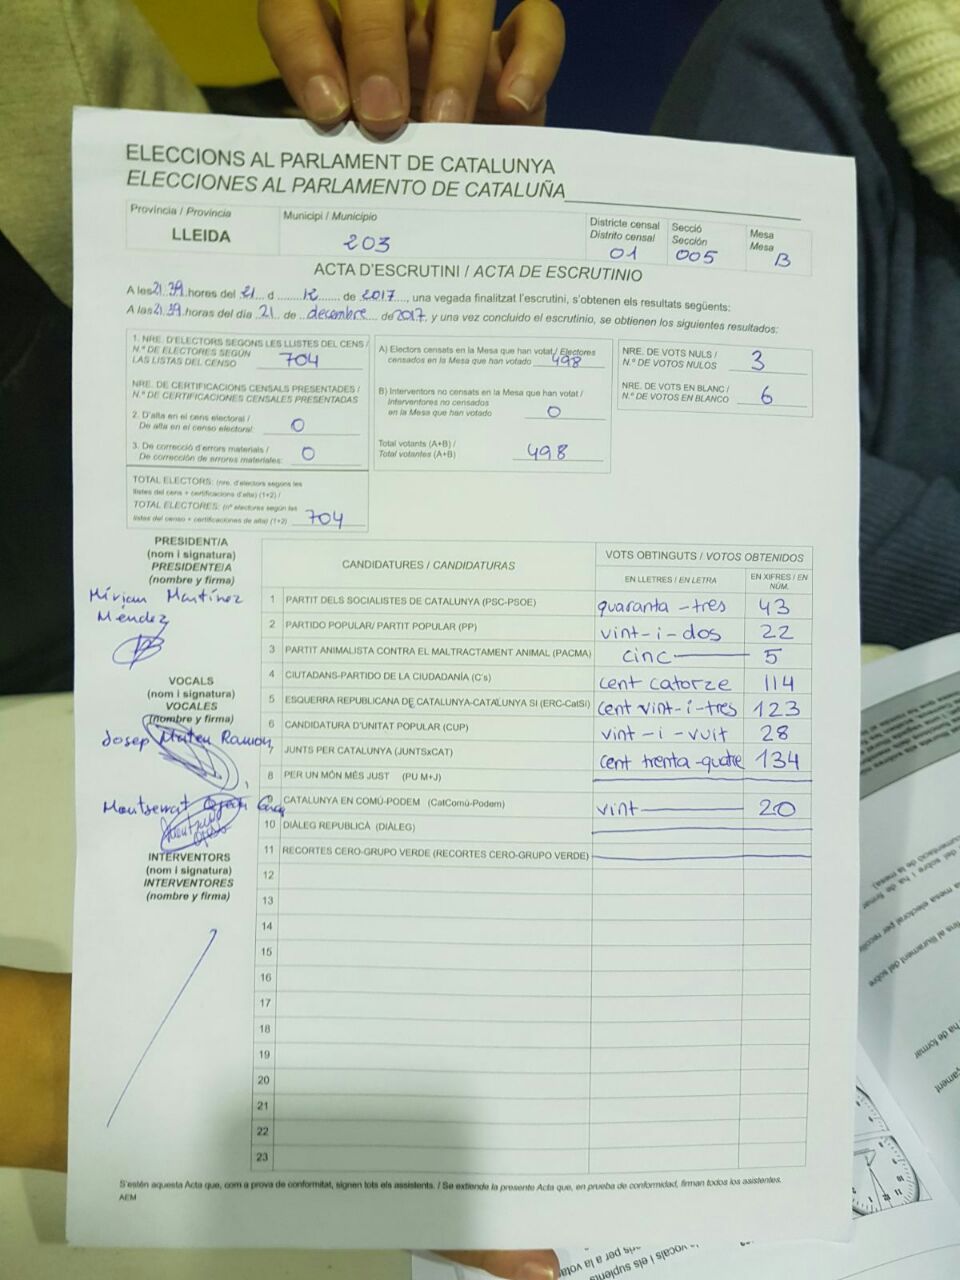 ELECCIONS AL PARLAMENT DE CATALUNYA
ELECCIONES AL PARLAMENTO DE CATALUÑA
Província / Provincia
LLEIDA
Municipi / Municipio
203
Districte censal
Distrito censal
01
Secció
Sección
005
Mesa
Mesa
B
ACTA D'ESCRUTINI / ACTA DE ESCRUTINIO
A les 21.39 hores del 21 d 12 de 2017, una vegada finalitzat l'escrutini, s'obtenen els resultats següents:
A las 21.39 horas del día 21 de decembre de 2017, y una vez concluido el escrutinio, se obtienen los siguientes resultados:
1. NRE. D'ELECTORS SEGONS LES LLISTES DEL CENS /
N.º DE ELECTORES SEGÚN
LAS LISTAS DEL CENSO 704
NRE. DE CERTIFICACIONS CENSALS PRESENTADES /
N.º DE CERTIFICACIONES CENSALES PRESENTADAS
2. D'alta en el cens electoral /
De alta en el censo electoral: 0
3. De correcció d'errors materials /
De corrección de errores materiales: 0
TOTAL ELECTORS: (nre. d'electors segons les
llistes del cens + certificacions d'alta) (1+2) /
TOTAL ELECTORES: (nº electores según las
listas del censo + certificaciones de alta) (1+2) 704
A) Electors censats en la Mesa que han votat / Electores
censados en la Mesa que han votado 498
B) Interventors no censats en la Mesa que han votat /
Interventores no censados
en la Mesa que han votado 0
Total votants (A+B) /
Total votantes (A+B) 498
NRE. DE VOTS NULS /
N.º DE VOTOS NULOS 3
NRE. DE VOTS EN BLANC /
N.º DE VOTOS EN BLANCO 6
PRESIDENT/A
(nom i signatura)
PRESIDENTE/A
(nombre y firma)
Míriam Martínez
Méndez
VOCALS
(nom i signatura)
VOCALES
(nombre y firma)
Josep Mateu Ramon
Montserrat
INTERVENTORS
(nom i signatura)
INTERVENTORES
(nombre y firma)
CANDIDATURES / CANDIDATURAS
VOTS OBTINGUTS / VOTOS OBTENIDOS
EN LLETRES / EN LETRA
EN XIFRES / EN NÚM.
1 PARTIT DELS SOCIALISTES DE CATALUNYA (PSC-PSOE) quaranta-tres 43
2 PARTIDO POPULAR/ PARTIT POPULAR (PP) vint-i-dos 22
3 PARTIT ANIMALISTA CONTRA EL MALTRACTAMENT ANIMAL (PACMA) cinc 5
4 CIUTADANS-PARTIDO DE LA CIUDADANÍA (C's) cent catorze 114
5 ESQUERRA REPUBLICANA DE CATALUNYA-CATALUNYA SÍ (ERC-CatSí) cent vint-i-tres 123
6 CANDIDATURA D'UNITAT POPULAR (CUP) vint-i-vuit 28
7 JUNTS PER CATALUNYA (JUNTSxCAT) cent trenta-quatre 134
8 PER UN MÓN MÉS JUST (PU M+J)
9 CATALUNYA EN COMÚ-PODEM (CatComú-Podem) vint 20
10 DIÀLEG REPUBLICÀ (DIÀLEG)
11 RECORTES CERO-GRUPO VERDE (RECORTES CERO-GRUPO VERDE)
12
13
14
15
16
17
18
19
20
21
22
23
S'estén aquesta Acta que, com a prova de conformitat, signen tots els assistents. / Se extiende la presente Acta que, en prueba de conformidad, firman todos los asistentes.
AEM